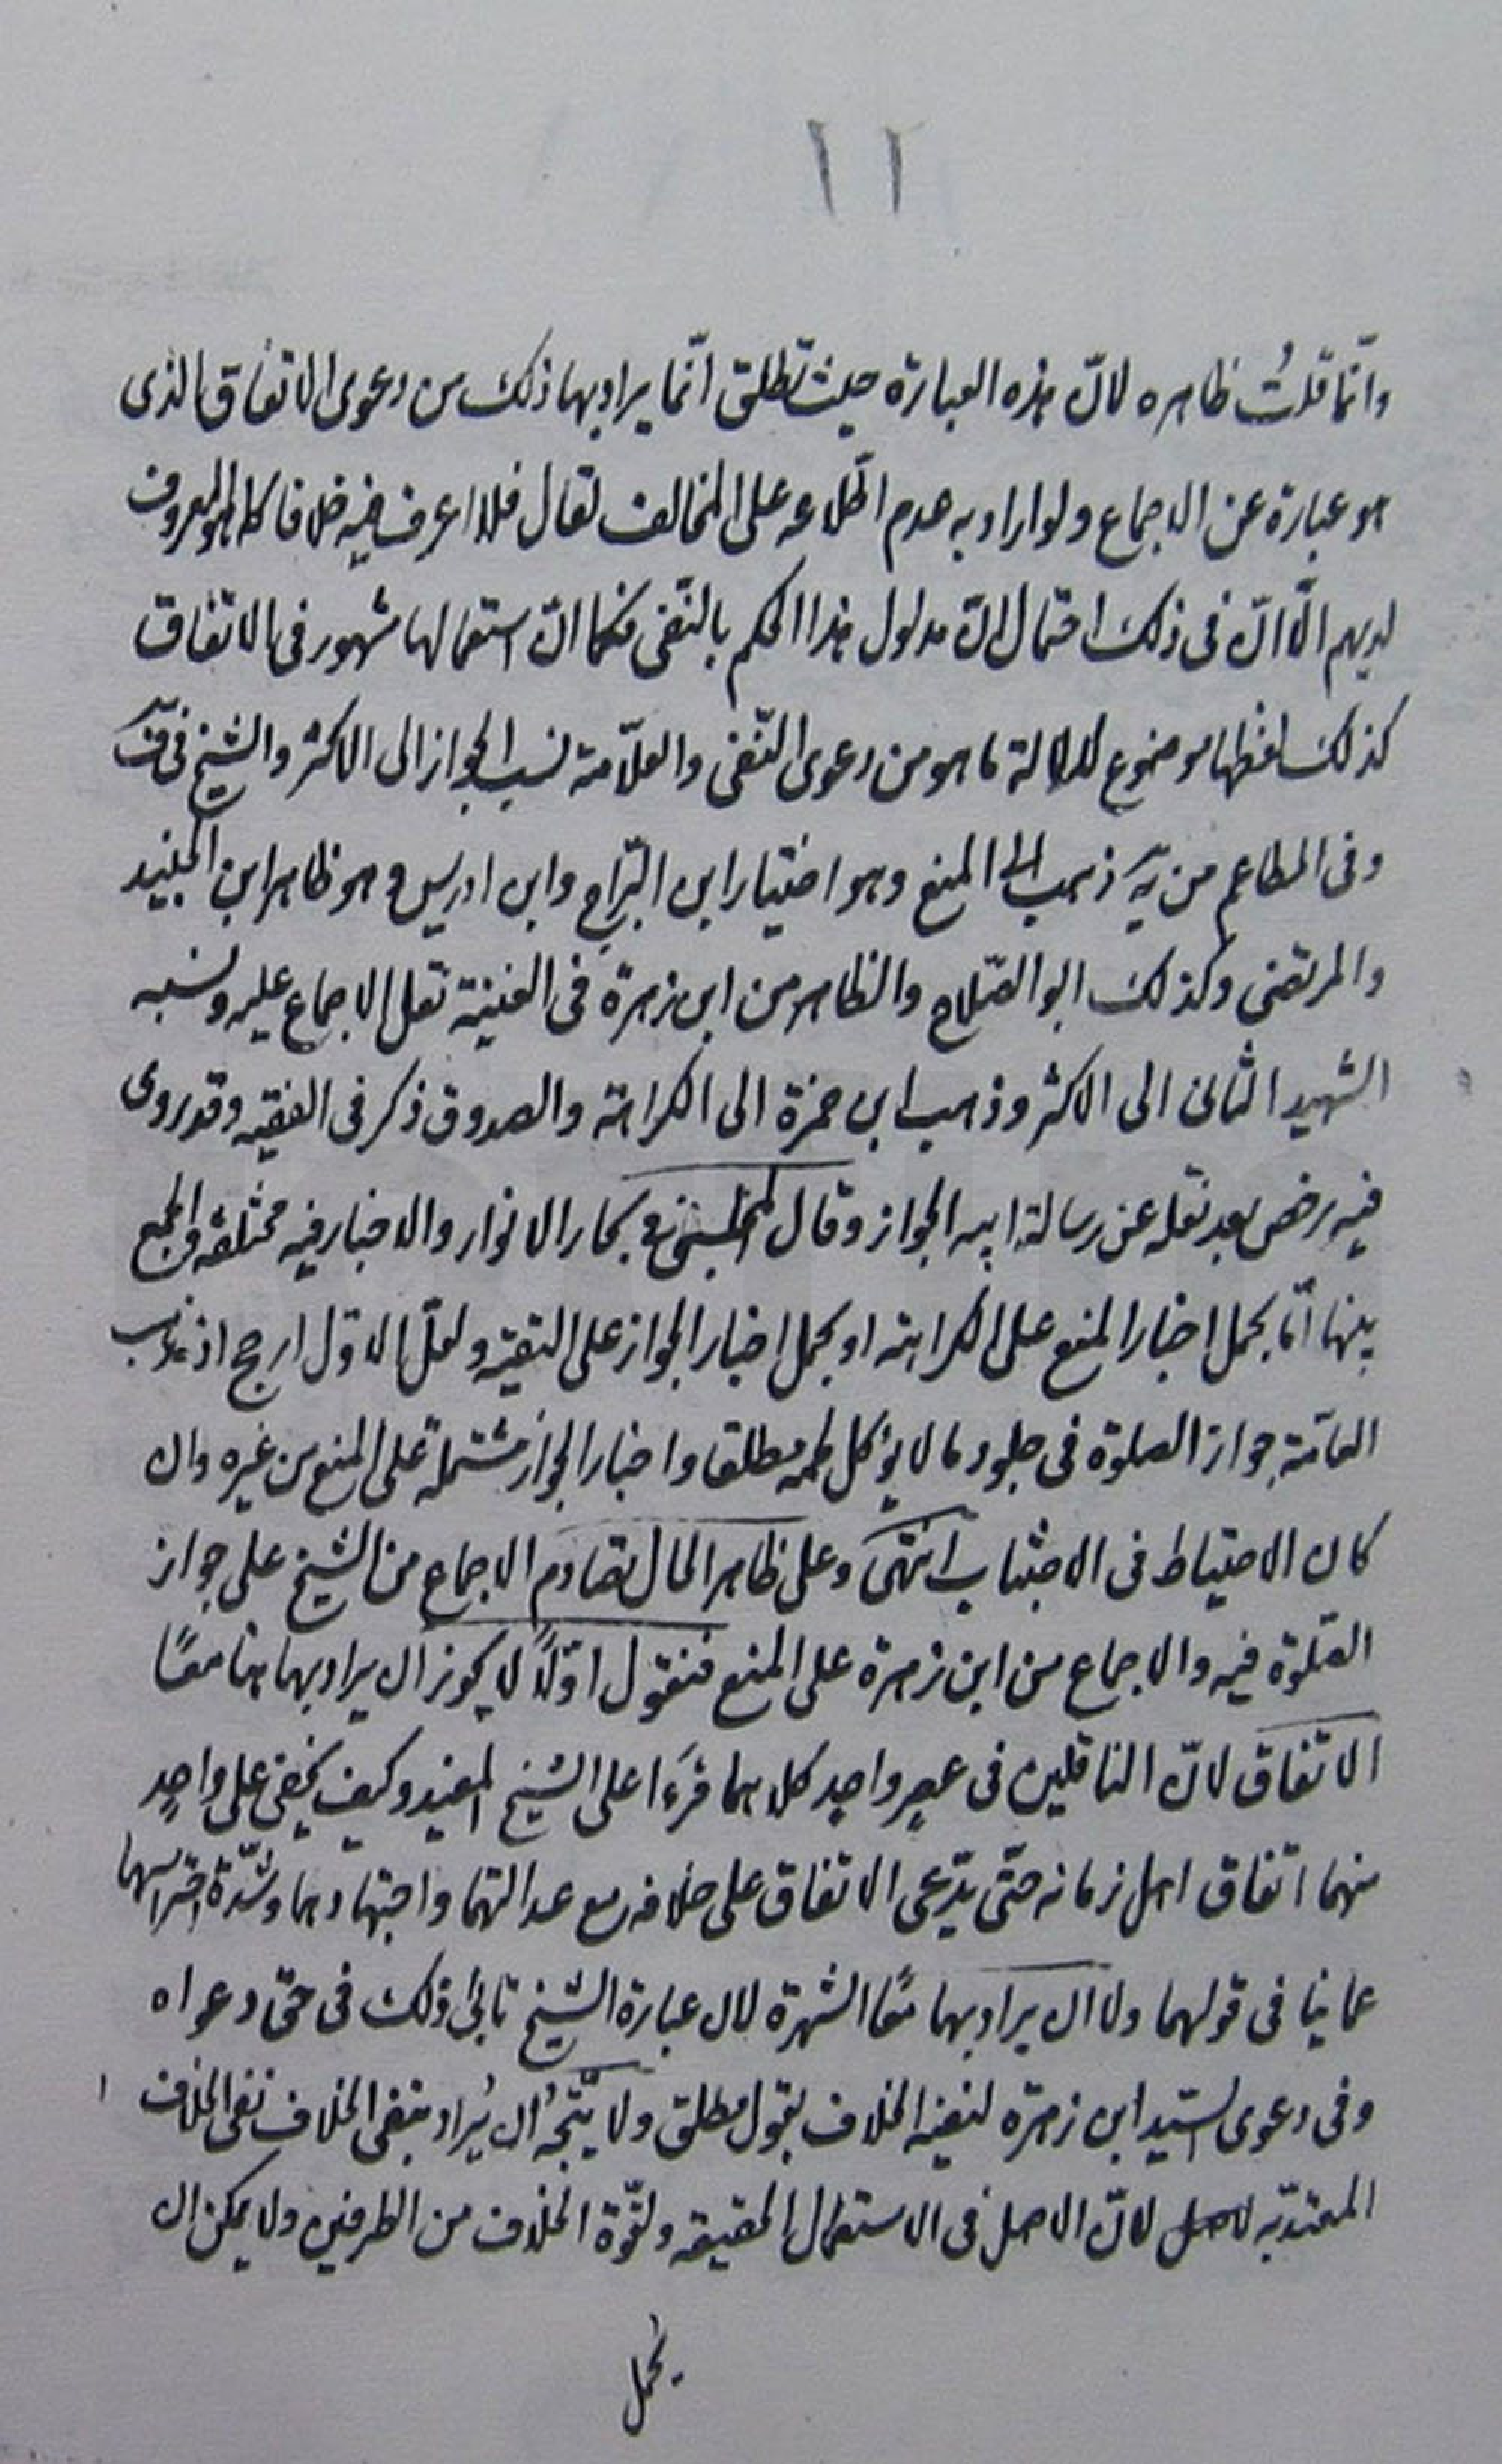 ١١
وانّما قلتُ ظاهره لانّ هذه العبارة حيث تطلق انّما يراد بها ذلك من دعوى الاتفاق الذى
هو عبارة عن الاجماع ولو اراد به عدم اطّلاعه على المخالف لقال فلا اعرف فيه خلافا كما هو المعروف
لديهم الّا انّ فى ذلك احتمال انّ مدلول هذا الحكم بالنّفى فكما انّ استعمالها مشهور فى الاتفاق
كذلك لفظها موضوع للدلالة ما هو من دعوى النّفى والعلّامة نسب الجواز الى الاكثر والشيخ فى ف
وفى المطاعم من يه ذهب الى المنع وهو اختيار ابن البرّاج وابن ادريس وهو ظاهر ابن الجنيد
والمرتضى وكذلك ابو الصّلاح والظاهر من ابن زهرة فى الغنية نقل الاجماع عليه ونسبه
الشهيد الثانى الى الاكثر وذهب ابن حمزة الى الكراهة والصدوق ذكر فى الفقيه وقد روى
فيه رخص بعد نقله عن رسالة ابيه الجواز وقال المجلسى فى بحار الانوار والاخبار فيه مختلفة والجمع
بينها امّا بحمل اخبار المنع على الكراهة او بحمل اخبار الجواز على التقيّة ولعلّ الاوّل ارجح اذ مذهب
العامّة جواز الصلوة فى جلود ما لا يؤكل لحمه مطلقا واخبار الجواز مشتملة على المنع من غيره وان
كان الاحتياط فى الاجتناب انتهى وعلى ظاهر الحال تصادم الاجماع من الشيخ على جواز
الصّلوة فيه والاجماع من ابن زهرة على المنع فنقول اوّلاً لا يجوز ان يراد بهما هنا معًا
الاتفاق لانّ الناقلين فى عصرٍ واحدٍ كلاهما قرءَا على الشيخ المفيد وكيف يخفى على واحدٍ
منهما اتفاق اهل زمانه حتّى يدّعى الاتفاق على خلافه مع عدالتهما واجتهادهما وشدّة احتراسهما
عما ينافى قولهما ولا ان يراد بهما معًا الشهرة لان عبارة الشيخ تابى ذلك فى حق دعواه
وفى دعوى السّيد ابن زهرة لنفيه الخلاف بقول مطلق ولا يتّجهُ ان يُراد بنفى الخلاف نفى الخلاف
المعتدّ به لانّ الاصل فى الاستعمال الحقيقه ولقوّة الخلاف من الطرفين ولا يمكن ان
يحمل